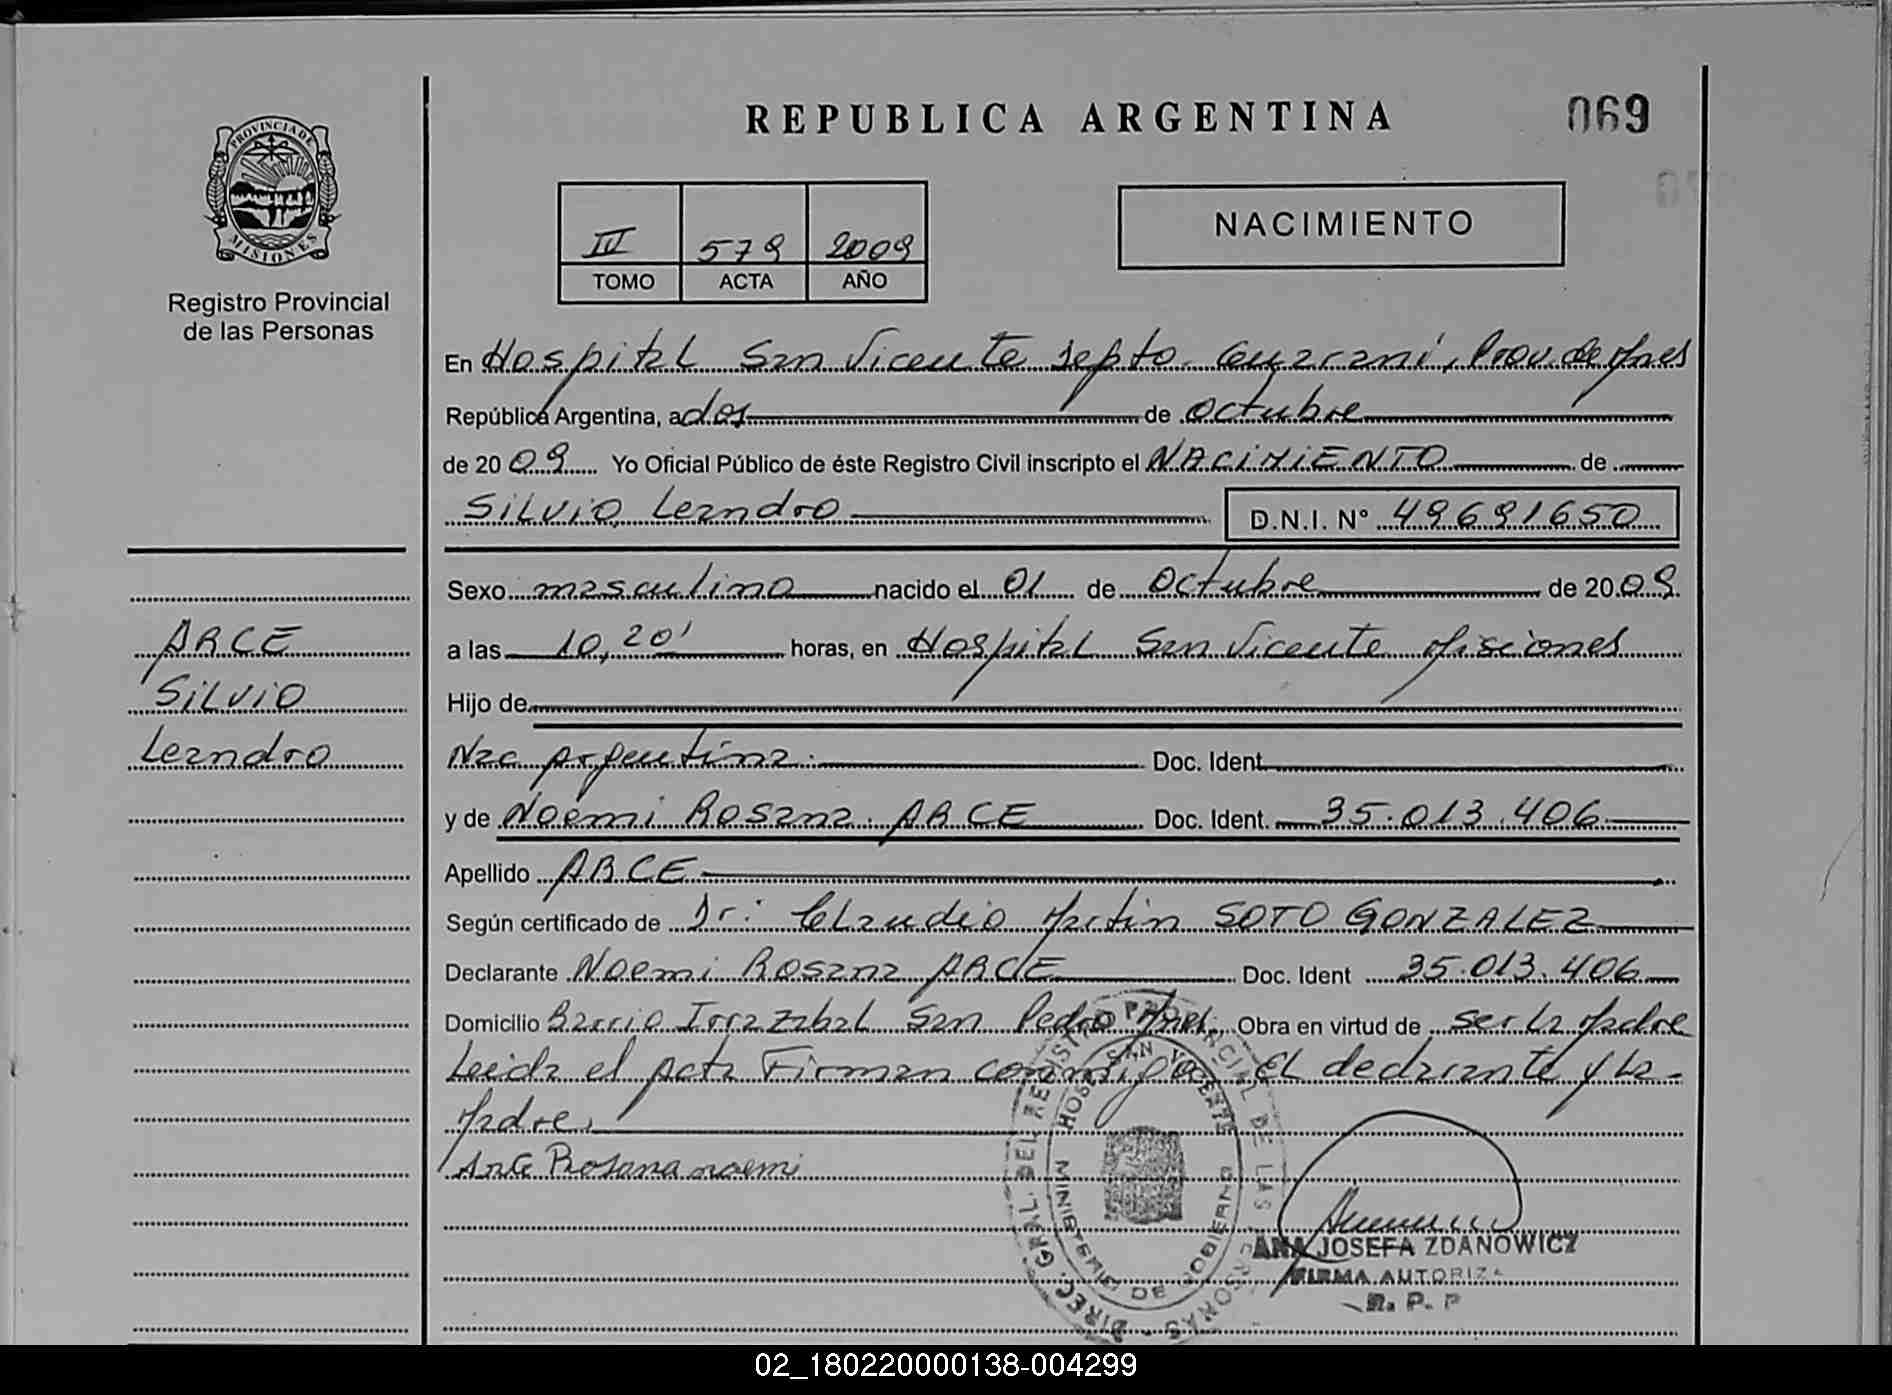 REPUBLICA ARGENTINA
069
PROVINCIA DE MISIONES
Registro Provincial
de las Personas
IV 579 2009
TOMO ACTA AÑO
NACIMIENTO
En Hospital San Vicente Depto. Guarani, Prov. de Mnes
República Argentina, a dos de octubre
de 2009 Yo Oficial Público de éste Registro Civil inscripto el NACIMIENTO de
SiLViO Leandro D.N.I. Nº 49691650
Sexo masculino nacido el 01 de Octubre de 2009
a las 10,20' horas, en Hospital San Vicente Misiones
Hijo de
Nac Argentina. Doc. Ident.
y de Noemi Rosana ARCE Doc. Ident. 35.013.406
Apellido ARCE
Según certificado de Dr: Claudio Martin SOTO GONZALEZ
Declarante Noemi Rosana ARCE Doc. Ident 35.013.406
Domicilio Barrio Irrazabal San Pedro Mnes. Obra en virtud de ser la Madre
Leida el acta Firman conmigo El declarante y La
Madre.
Arce Rosana noemi
ARCE
SiLViO
Leandro
DIREC. GRAL. DEL REGISTRO PROVINCIAL DE LAS PERSONAS
HOSP. SAN VICENTE
MINISTERIO DE GOBIERNO
ANA JOSEFA ZDANOWICZ
FIRMA AUTORIZA
R. P. P
02_180220000138-004299